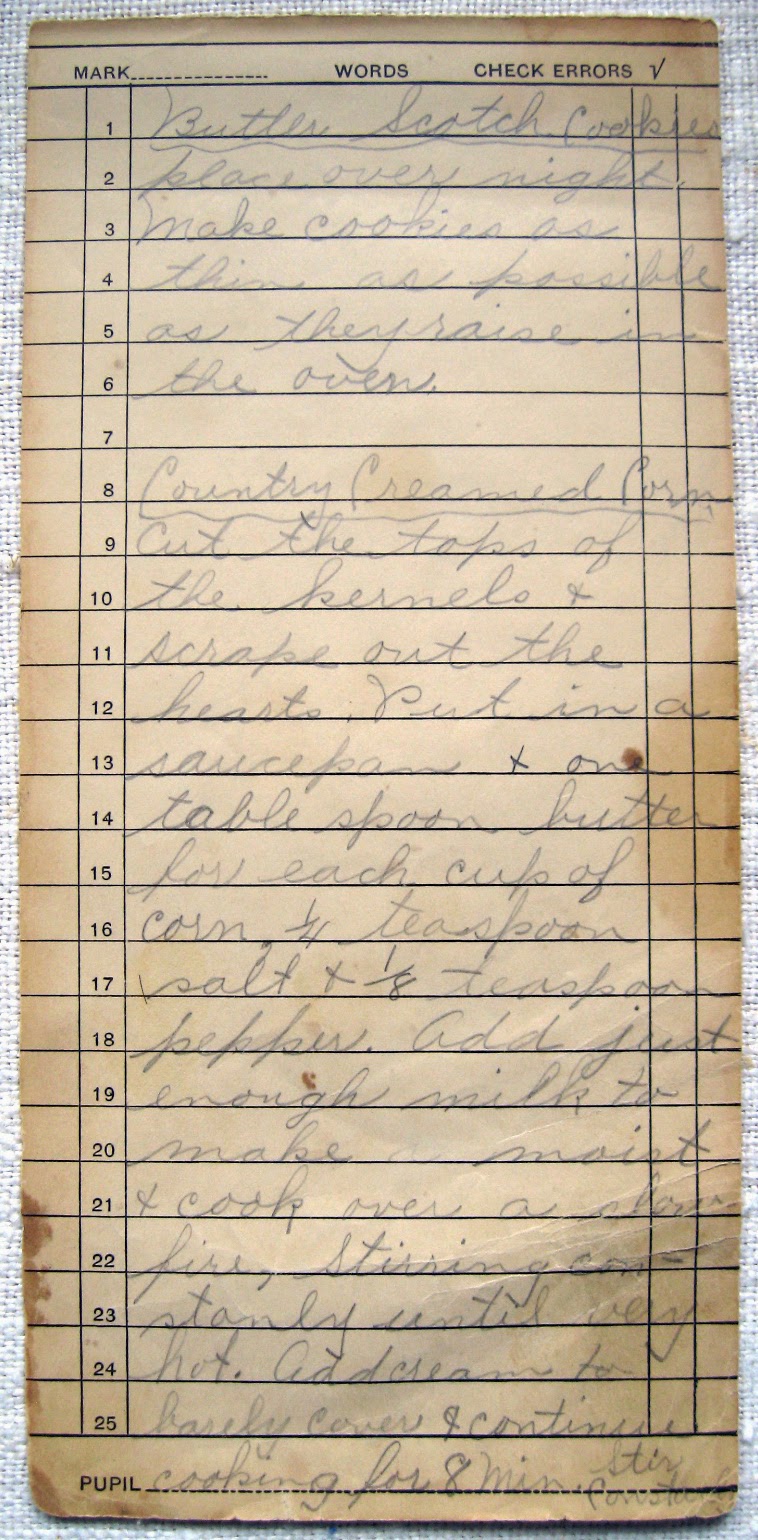 MARK WORDS CHECK ERRORS √
1 Butter Scotch Cookies
2 place over night.
3 Make cookies as
4 thin as possible
5 as they raise in
6 the oven.
7
8 Country Creamed Corn
9 Cut the tops of
10 the kernels &
11 scrape out the
12 hearts. Put in a
13 saucepan & one
14 table spoon butter
15 for each cup of
16 corn, 1/4 teaspoon
17 salt & 1/8 teaspoon
18 pepper. Add just
19 enough milk to
20 make a moist
21 & cook over a slow
22 fire, stirring con-
23 stanly until very
24 hot. Add cream to
25 barely cover & continue
PUPIL cooking for 8 Min. Stir